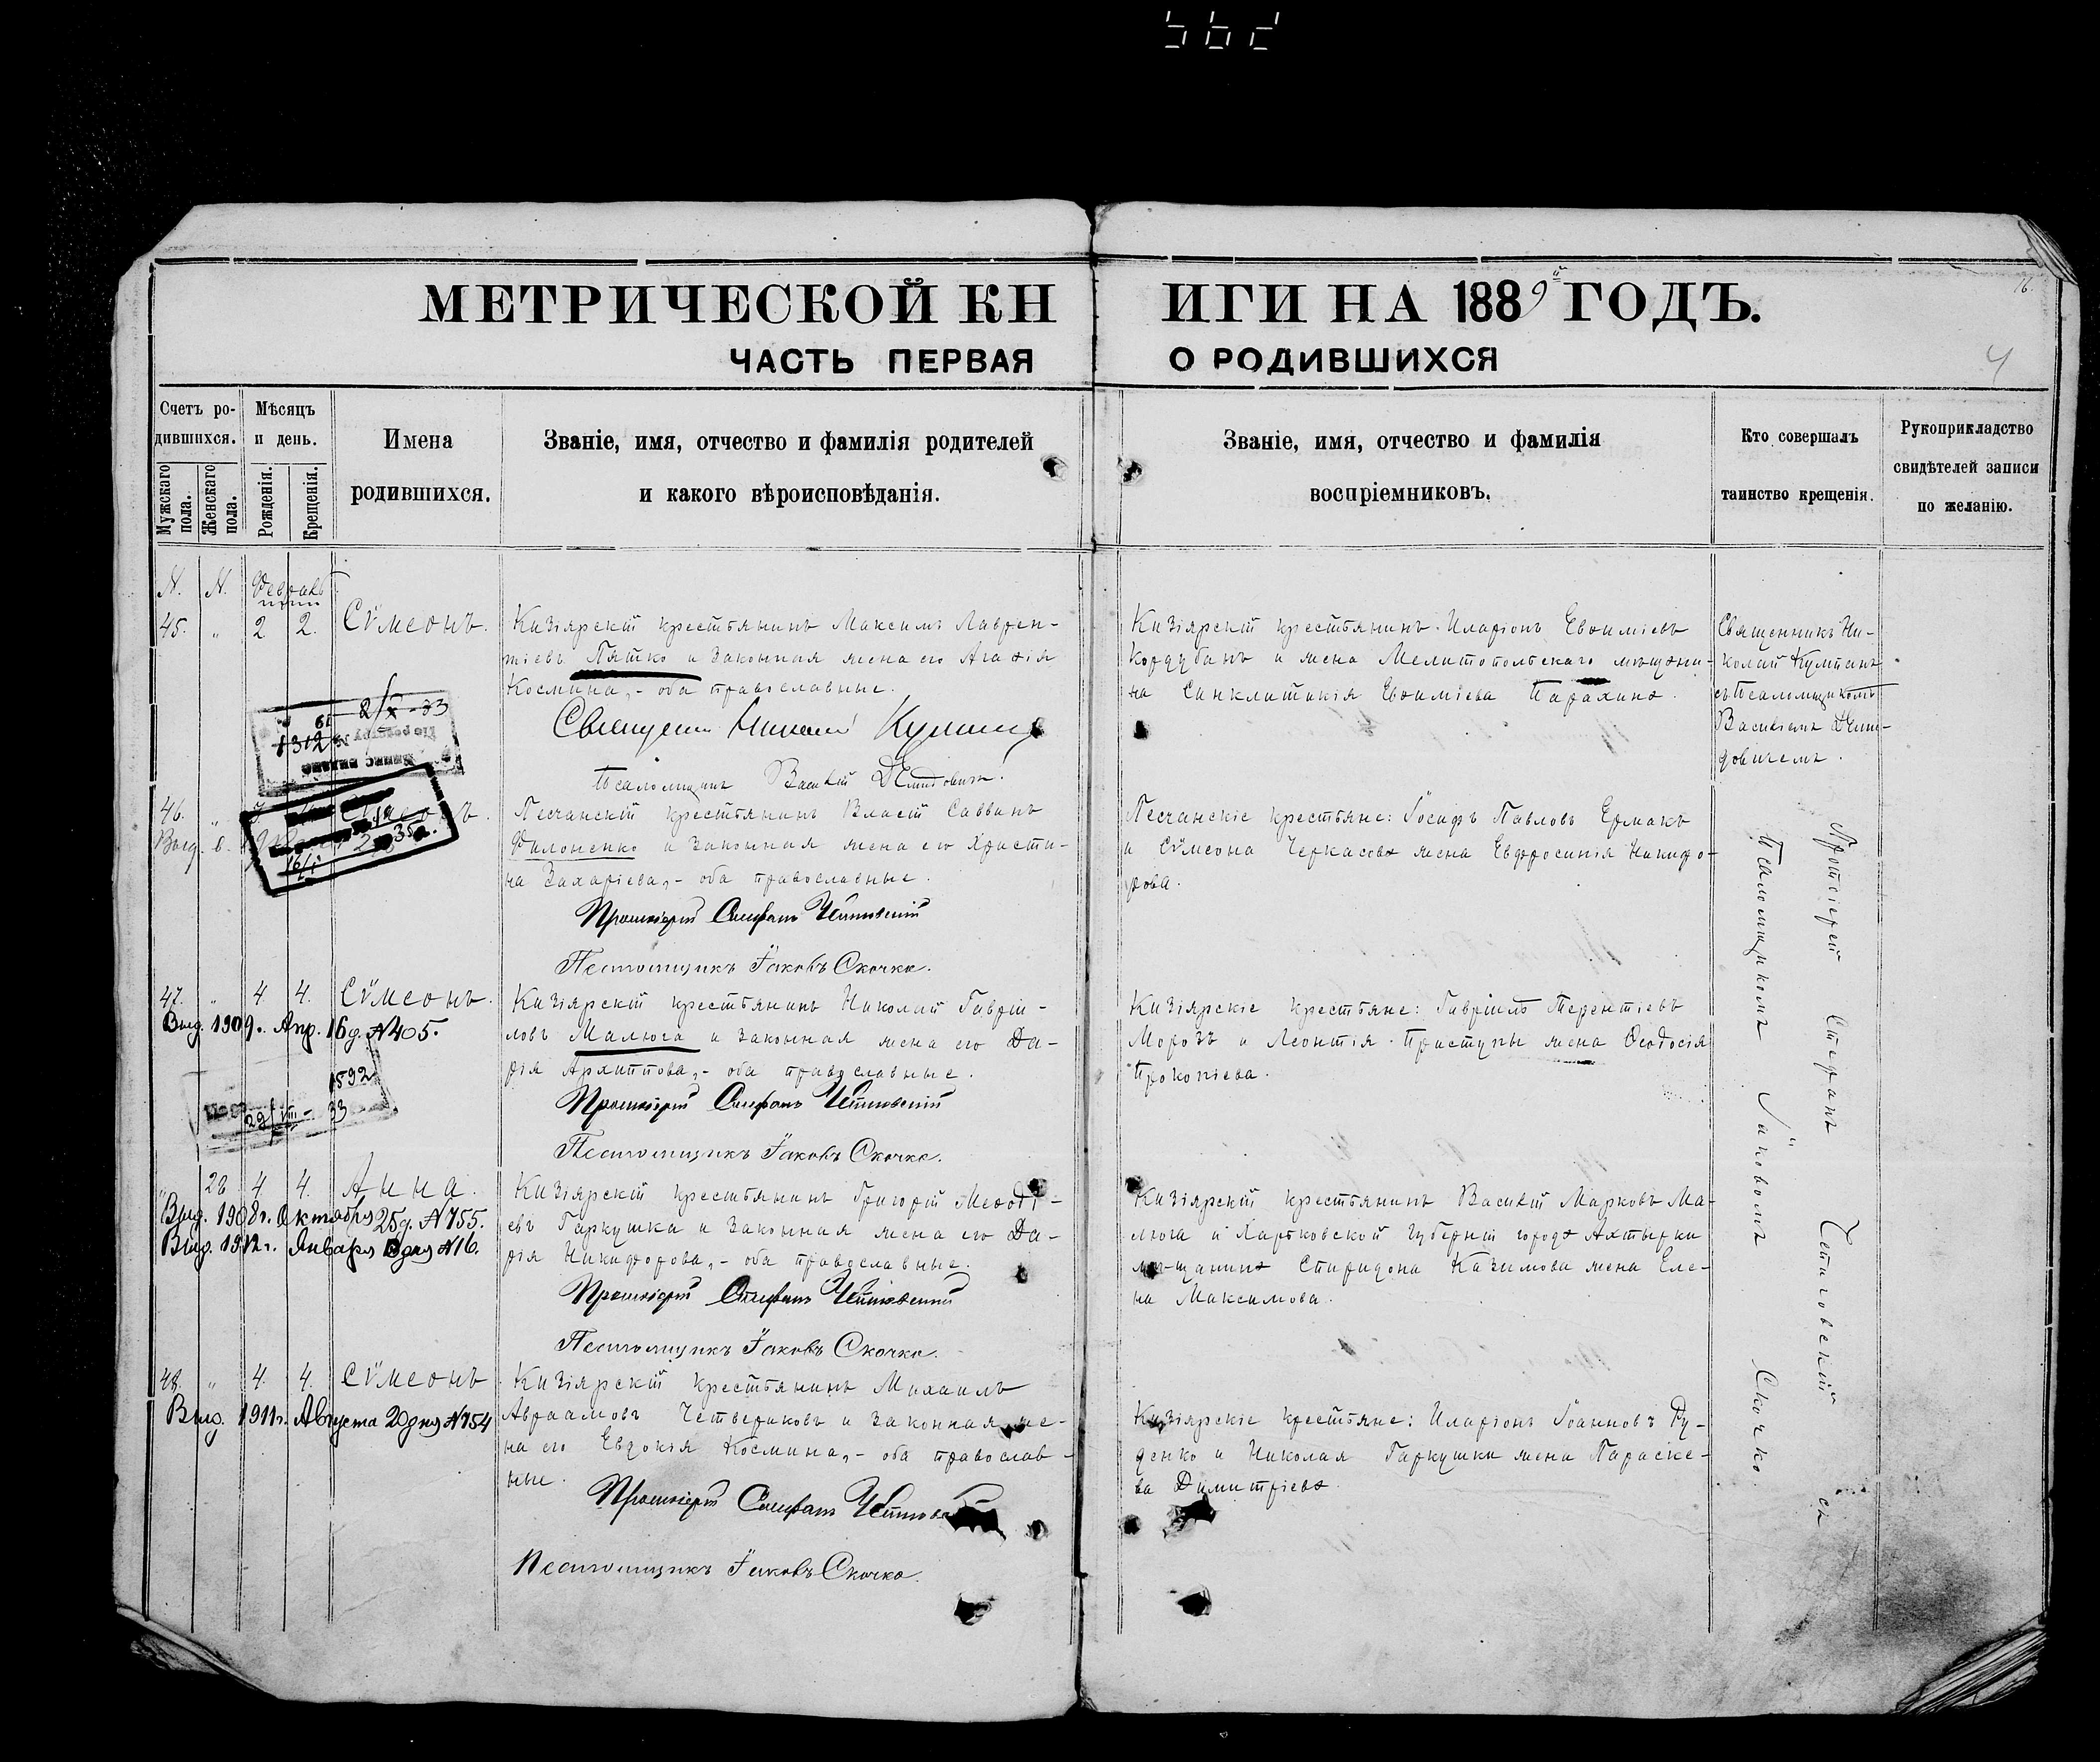 МЕТРИЧЕСКОЙ КНИГИ НА 1889й ГОДЪ.
ЧАСТЬ ПЕРВАЯ О РОДИВШИХСЯ
4
Счетъ ро-
дившихся.
Мужскаго пола.
Женскаго пола.
Мѣсяцъ
и день.
Рожденія.
Крещенія.
Имена
родившихся.
Званіе, имя, отчество и фамилія родителей
и какого вѣроисповѣданія.
Званіе, имя, отчество и фамилія
воспріемниковъ.
Кто совершалъ
таинство крещенія.
Рукоприкладство
свидѣтелей записи
по желанію.
N. N. Февраль
45. " 2. 2. Сѵмеонъ.
Кизіярскій крестьянинъ Максимъ Лаврен-
тіевъ Пятко и законная жена его Агаѳія
Космина, - оба православные.
Священникъ Николай Кумпанъ
Псаломщикъ Василій Демидовичъ.
Кизіярскій крестьянинъ Иларіонъ Евѳиміевъ
Кордубанъ и жена Мелитопольскаго мѣщани-
на Синклитикія Евѳиміева Парахина.
Священникъ Ни-
колай Кумпанъ
съ Псаломщикомъ
Василіемъ Деми-
довичемъ.
1312
2/X-33
46. "
Песчанскій крестьянинъ Власій Саввинъ
Филоненко и законная жена его Христи-
на Захаріева, - оба православные.
Протоіерей Стефанъ Четыговскій
Псаломщикъ Іаковъ Скочко.
Песчанскіе крестьяне: Іосифъ Павловъ Ермакъ
и Сѵмеона Черкасова жена Евфросинія Никифо-
рова.
47. " 4 4. Сѵмеонъ.
Выд. 1909г. Апр. 16д. N405.
Кизіярскій крестьянинъ Николай Гавріи-
ловъ Малюга и законная жена его Да-
рія Архиппова, - оба православные.
Протоіерей Стефанъ Четыговскій
Псаломщикъ Іаковъ Скочко.
Кизіярскіе крестьяне: Гавріилъ Терентіевъ
Морозъ и Леонтія Приступы жена Ѳеодосія
Прокопіева.
1592
29/VIII-33
" 28 4 4. Анна.
Выд. 1908г. Октября 25д. N755.
Выд. 1912г. Января дня N16.
Кизіярскій крестьянинъ Григорій Меѳоді-
евъ Гаркушка и законная жена его Да-
рія Никифорова, - оба православные.
Протоіерей Стефанъ Четыговскій
Псаломщикъ Іаковъ Скочко.
Кизіярскій крестьянинъ Василій Марковъ Ма-
люга и Харьковской губерніи города Ахтырки
мѣщанина Спиридона Казимова жена Еле-
на Максимова.
48. " 4. 4. Сѵмеонъ
Выд. 1911г. Августа 20дня N754
Кизіярскій крестьянинъ Михаилъ
Авраамовъ Четвериковъ и законная же-
на его Евдокія Космина, - оба православ-
ные.
Протоіерей Стефанъ
Псаломщикъ Іаковъ Скочко.
Кизіярскіе крестьяне: Иларіонъ Іоанновъ Ру-
денко и Николая Гаркушки жена Параске-
ва Димитріева.
Протоіерей Стефанъ Четыговскій съ
Псаломщикомъ Іаковомъ Скочко.